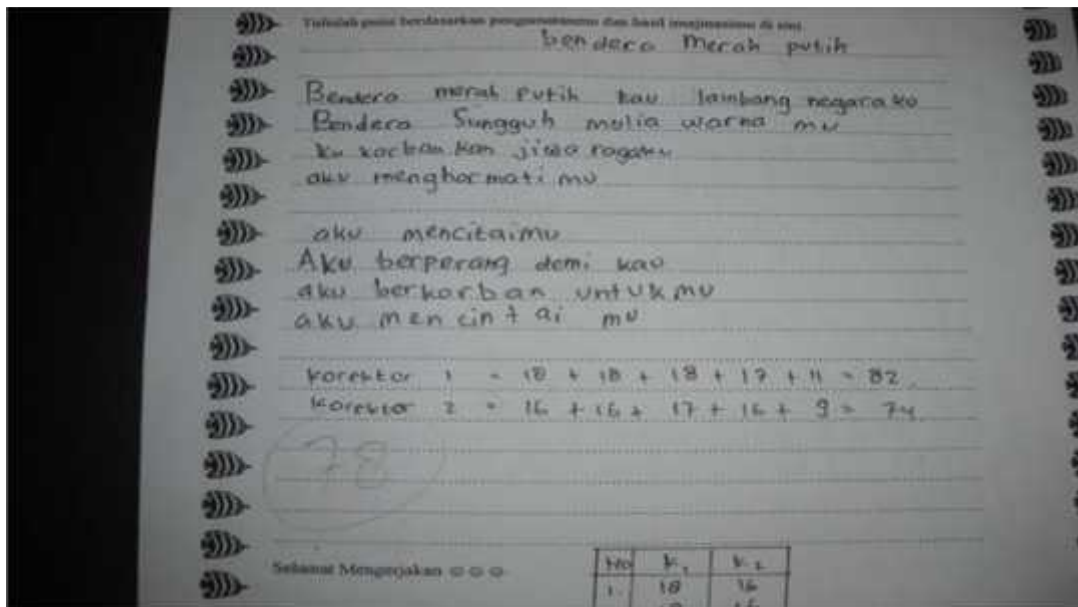 Tulislah puisi berdasarkan pengamatanmu dan hasil imajinasimu di sini
bendera Merah putih
Bendera merah Putih kau lambang negaraku
Bendera Sungguh mulia warna mu
ku korbankan jiwa ragaku
aku menghormati mu
aku mencitaimu
Aku berperang demi kau
aku berkorban untukmu
aku mencintai mu
Korektor 1 = 18 + 18 + 18 + 17 + 11 = 82
Korektor 2 = 16 + 16 + 17 + 16 + 9 = 74
78
Selamat Mengerjakan ☺☺☺
No K1 K2
1. 18 16